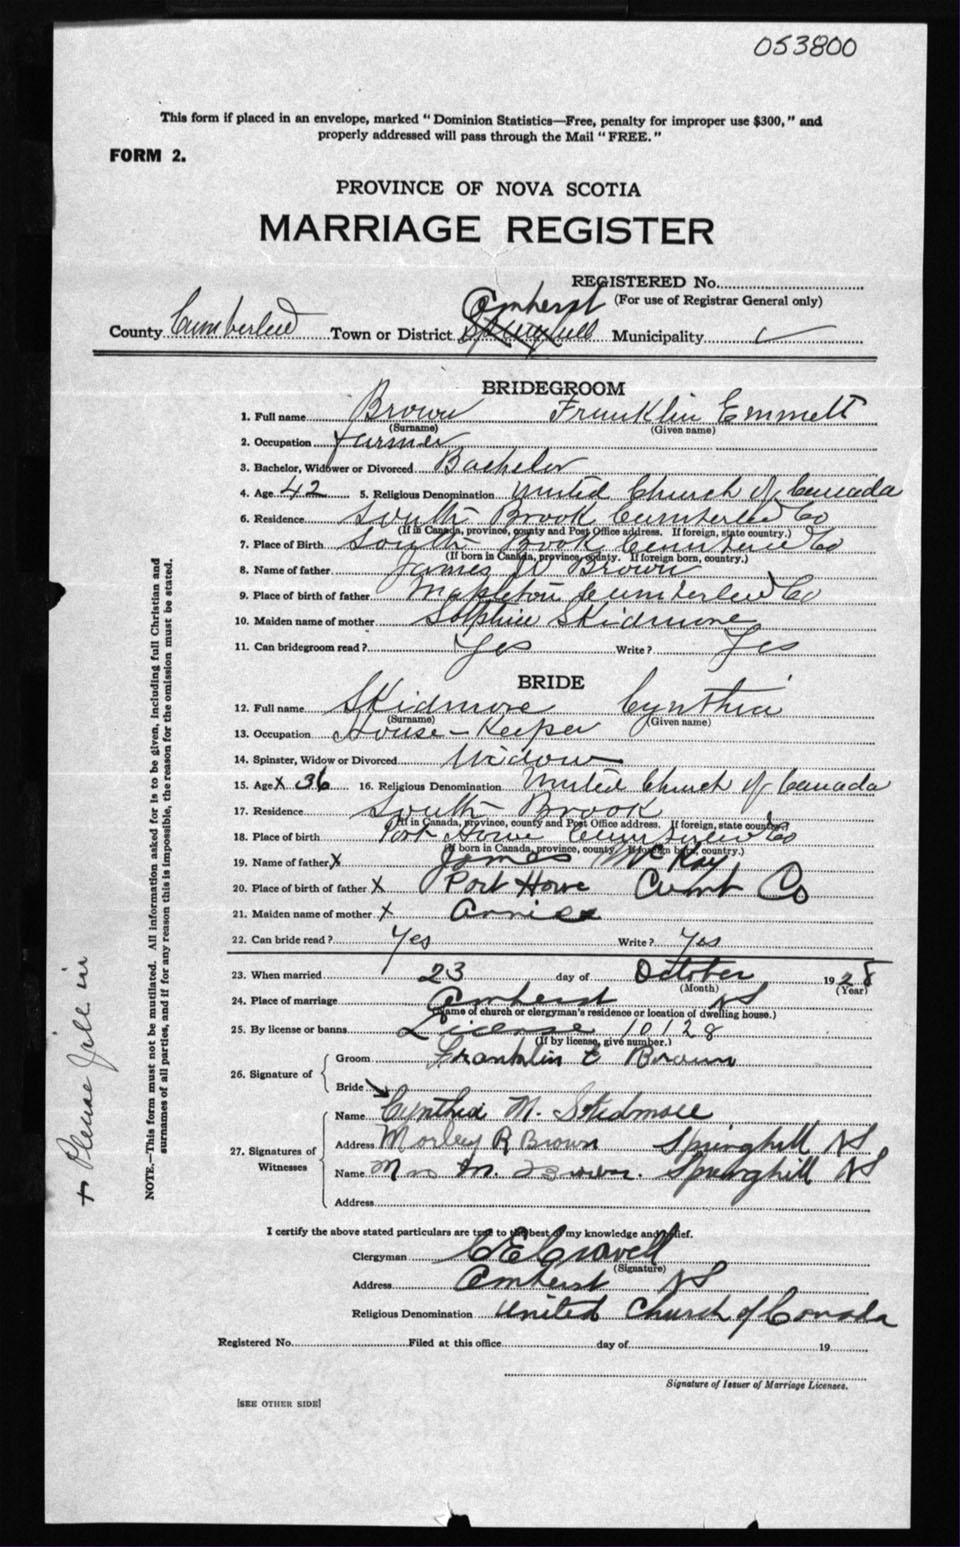 053800
This form if placed in an envelope, marked “ Dominion Statistics—Free, penalty for improper use $300,” and
properly addressed will pass through the Mail “ FREE. ”
FORM 2.
PROVINCE OF NOVA SCOTIA
MARRIAGE REGISTER
REGISTERED No.
(For use of Registrar General only)
Amherst
County Cumberland Town or District Springhill Municipality
BRIDEGROOM
1. Full name Brown Franklin Emmett
(Surname) (Given name)
2. Occupation farmer
3. Bachelor, Widower or Divorced Bachelor
4. Age 42 5. Religious Denomination United Church of Canada
6. Residence South Brook Cumberland Co
(If in Canada, province, county and Post Office address. If foreign, state country.)
7. Place of Birth South Brook Cumberland Co
(If born in Canada, province, county. If foreign born, country.)
8. Name of father James Brown
9. Place of birth of father Mapleton Cumberland Co
10. Maiden name of mother Skidmore
11. Can bridegroom read? Yes Write? Yes
BRIDE
12. Full name Skidmore Cynthia
(Surname) (Given name)
13. Occupation House-Keeper
14. Spinster, Widow or Divorced Widow
15. Age X 36 16. Religious Denomination United Church of Canada
17. Residence South Brook
(If in Canada, province, county and Post Office address. If foreign, state country.)
18. Place of birth Port Howe Cumberland Co
(If born in Canada, province, county. If foreign born, country.)
19. Name of father X James McKay
20. Place of birth of father X Port Howe Cumb Co
21. Maiden name of mother X Annie
22. Can bride read? Yes Write? Yes
23. When married 23 day of October 1928
(Month) (Year)
24. Place of marriage Amherst NS
(Name of church or clergyman's residence or location of dwelling house.)
25. By license or banns License 10128
(If by license, give number.)
26. Signature of
Groom Franklin E Brown
Bride
27. Signatures of Witnesses
Name Cynthia M. Skidmore
Address Morley R Brown Springhill NS
Name Mrs M. Brown. Springhill NS
Address
I certify the above stated particulars are true to the best of my knowledge and belief.
Clergyman C E Crowell
(Signature)
Address Amherst NS
Religious Denomination United Church of Canada
Registered No. Filed at this office day of 19
Signature of Issuer of Marriage Licenses.
[SEE OTHER SIDE]
NOTE.—This form must not be mutilated. All information asked for is to be given, including full Christian and
surnames of all parties, and if for any reason this is impossible, the reason for the omission must be stated.
+ Please fill in